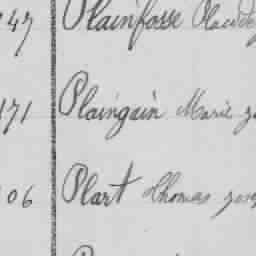 247 Plainfosse
171 Plaingain Marie
06 Plart Thomas